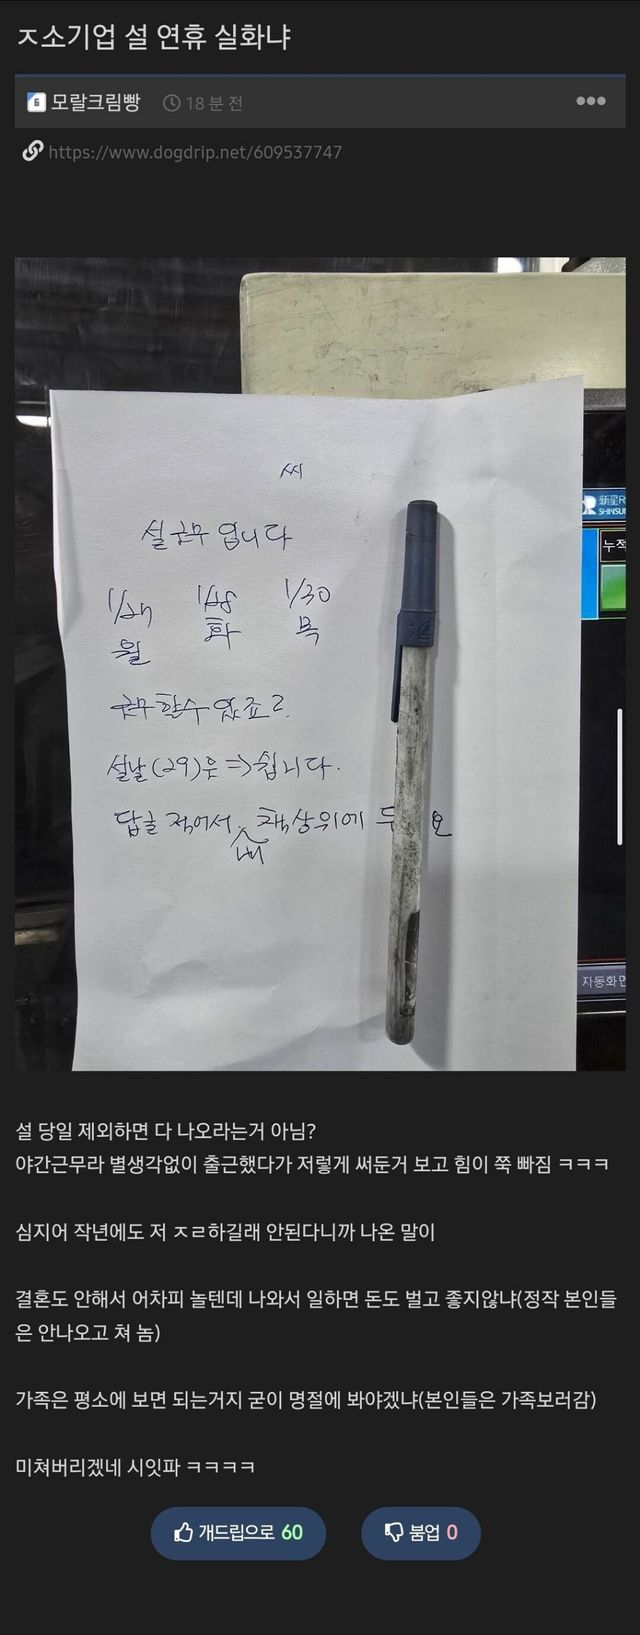 ㅈ소기업 설 연휴 실화냐
6 모랄크림빵 18 분 전
https://www.dogdrip.net/609537747
씨
설 근무 입니다
1/27 1/28 1/30
월 화 목
근무 할 수 있죠?
설날(29)은 => 쉽니다.
답글 적어서 내 책상위에
新星R
SHINSU
누적
자동화면
설 당일 제외하면 다 나오라는거 아님?
야간근무라 별생각없이 출근했다가 저렇게 써둔거 보고 힘이 쭉 빠짐 ㅋㅋㅋ
심지어 작년에도 저 ㅈㄹ하길래 안된다니까 나온 말이
결혼도 안해서 어차피 놀텐데 나와서 일하면 돈도 벌고 좋지않냐(정작 본인들
은 안나오고 쳐 놈)
가족은 평소에 보면 되는거지 굳이 명절에 봐야겠냐(본인들은 가족보러감)
미쳐버리겠네 시잇파 ㅋㅋㅋㅋ
개드립으로 60 붐업 0